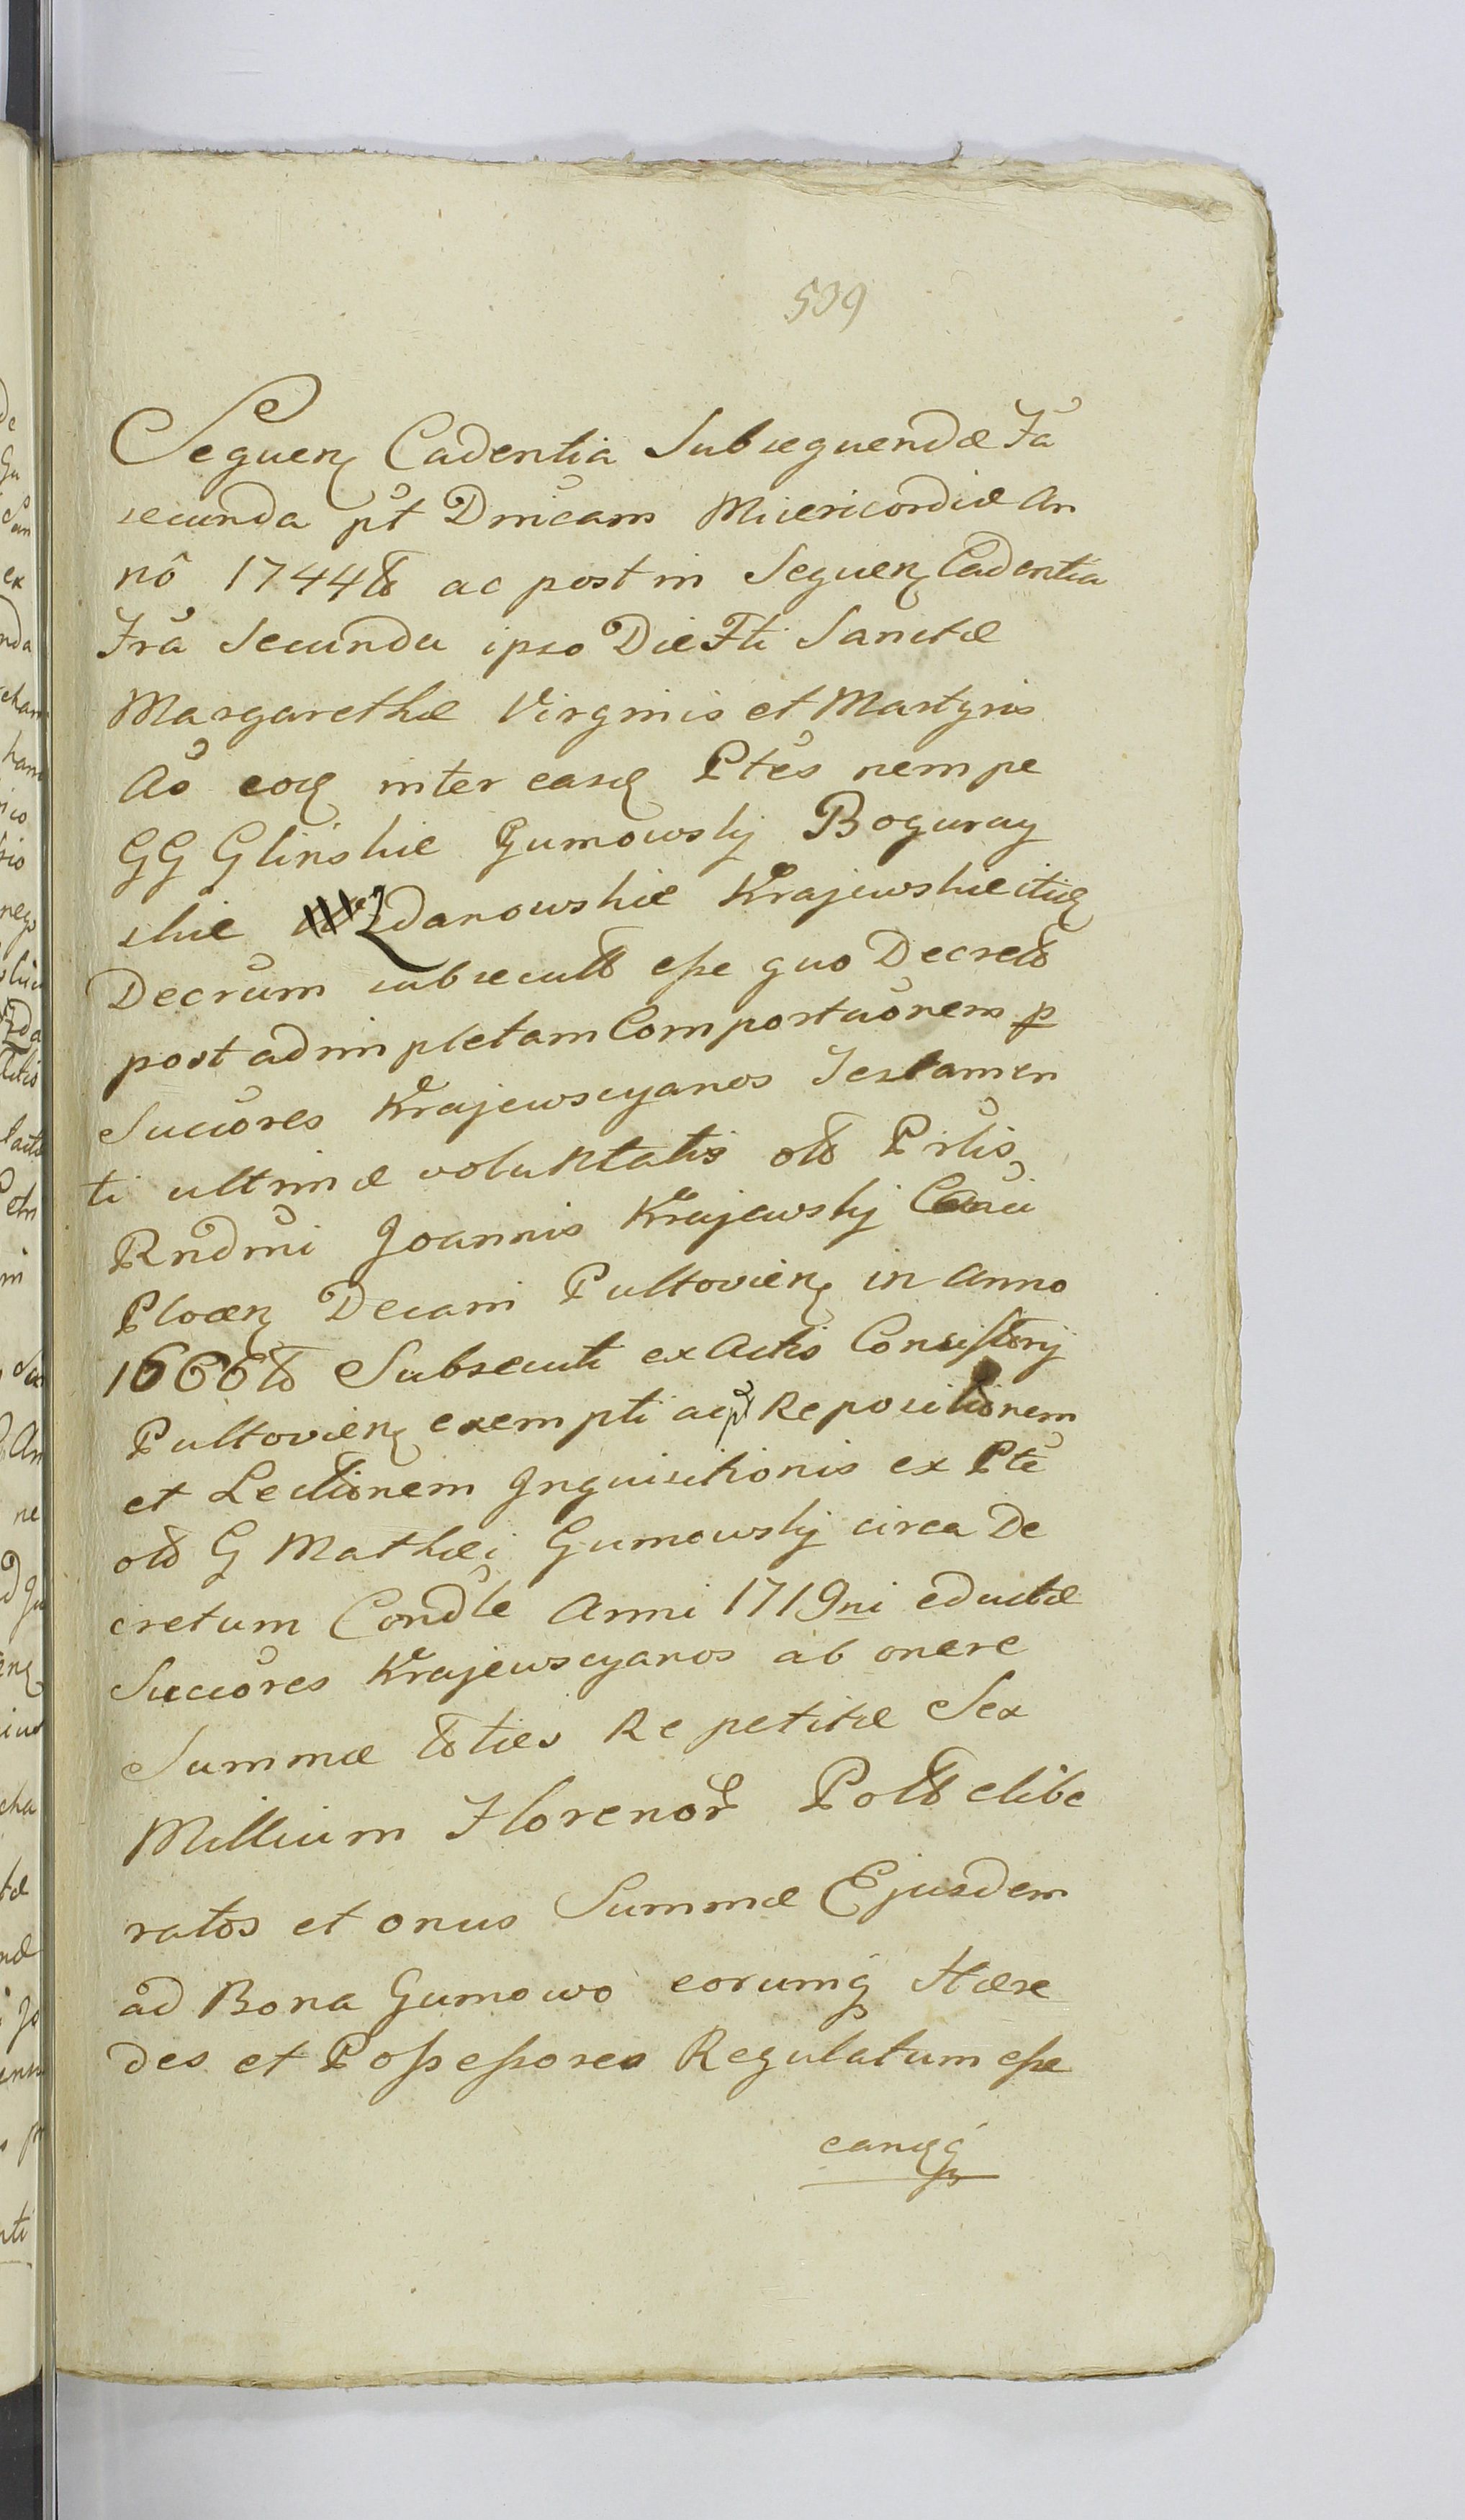 509
Sequen Cadentia Subsequendæ Fa
secunda pt Dnicam Misericordiæ An
nô 1744to ac post in Sequen Cadentia
Fra Secunda ipso Die Fti Sanctæ
Margarethæ Virginis et Martyris
Ao eoq inter easq Ptes nempe
GG Glinskie Gumowskj Boguray
skie Zdanowskie Krajewskie itiq
Decrum subsecuto esse quo Decreto
post adimpletam Comportaonem p
Succores Krajewscyanos Testamen
ti ultimæ voluntatis oto Prlis
Rndmi Joannis Krajewskj Cani
Plocen Decani Pultovien in Anno
1666to Subsecuti ex Actis Consistorij
Pultovien exempti ac pt Repositionem
et Lectionem Inquisitionis ex Pte
oto G Mathæi Gumowskj circa De
cretum Condle Anni 1719ni eductæ
Succores Krajewscyanos ab onere
Summæ toties Repetitæ Sex
Millium Florenor Polto elibe
ratos et onus Summæ Ejusdem
ad Bona Gumowo eorumq Hære
des et Possessores Regulatum esse